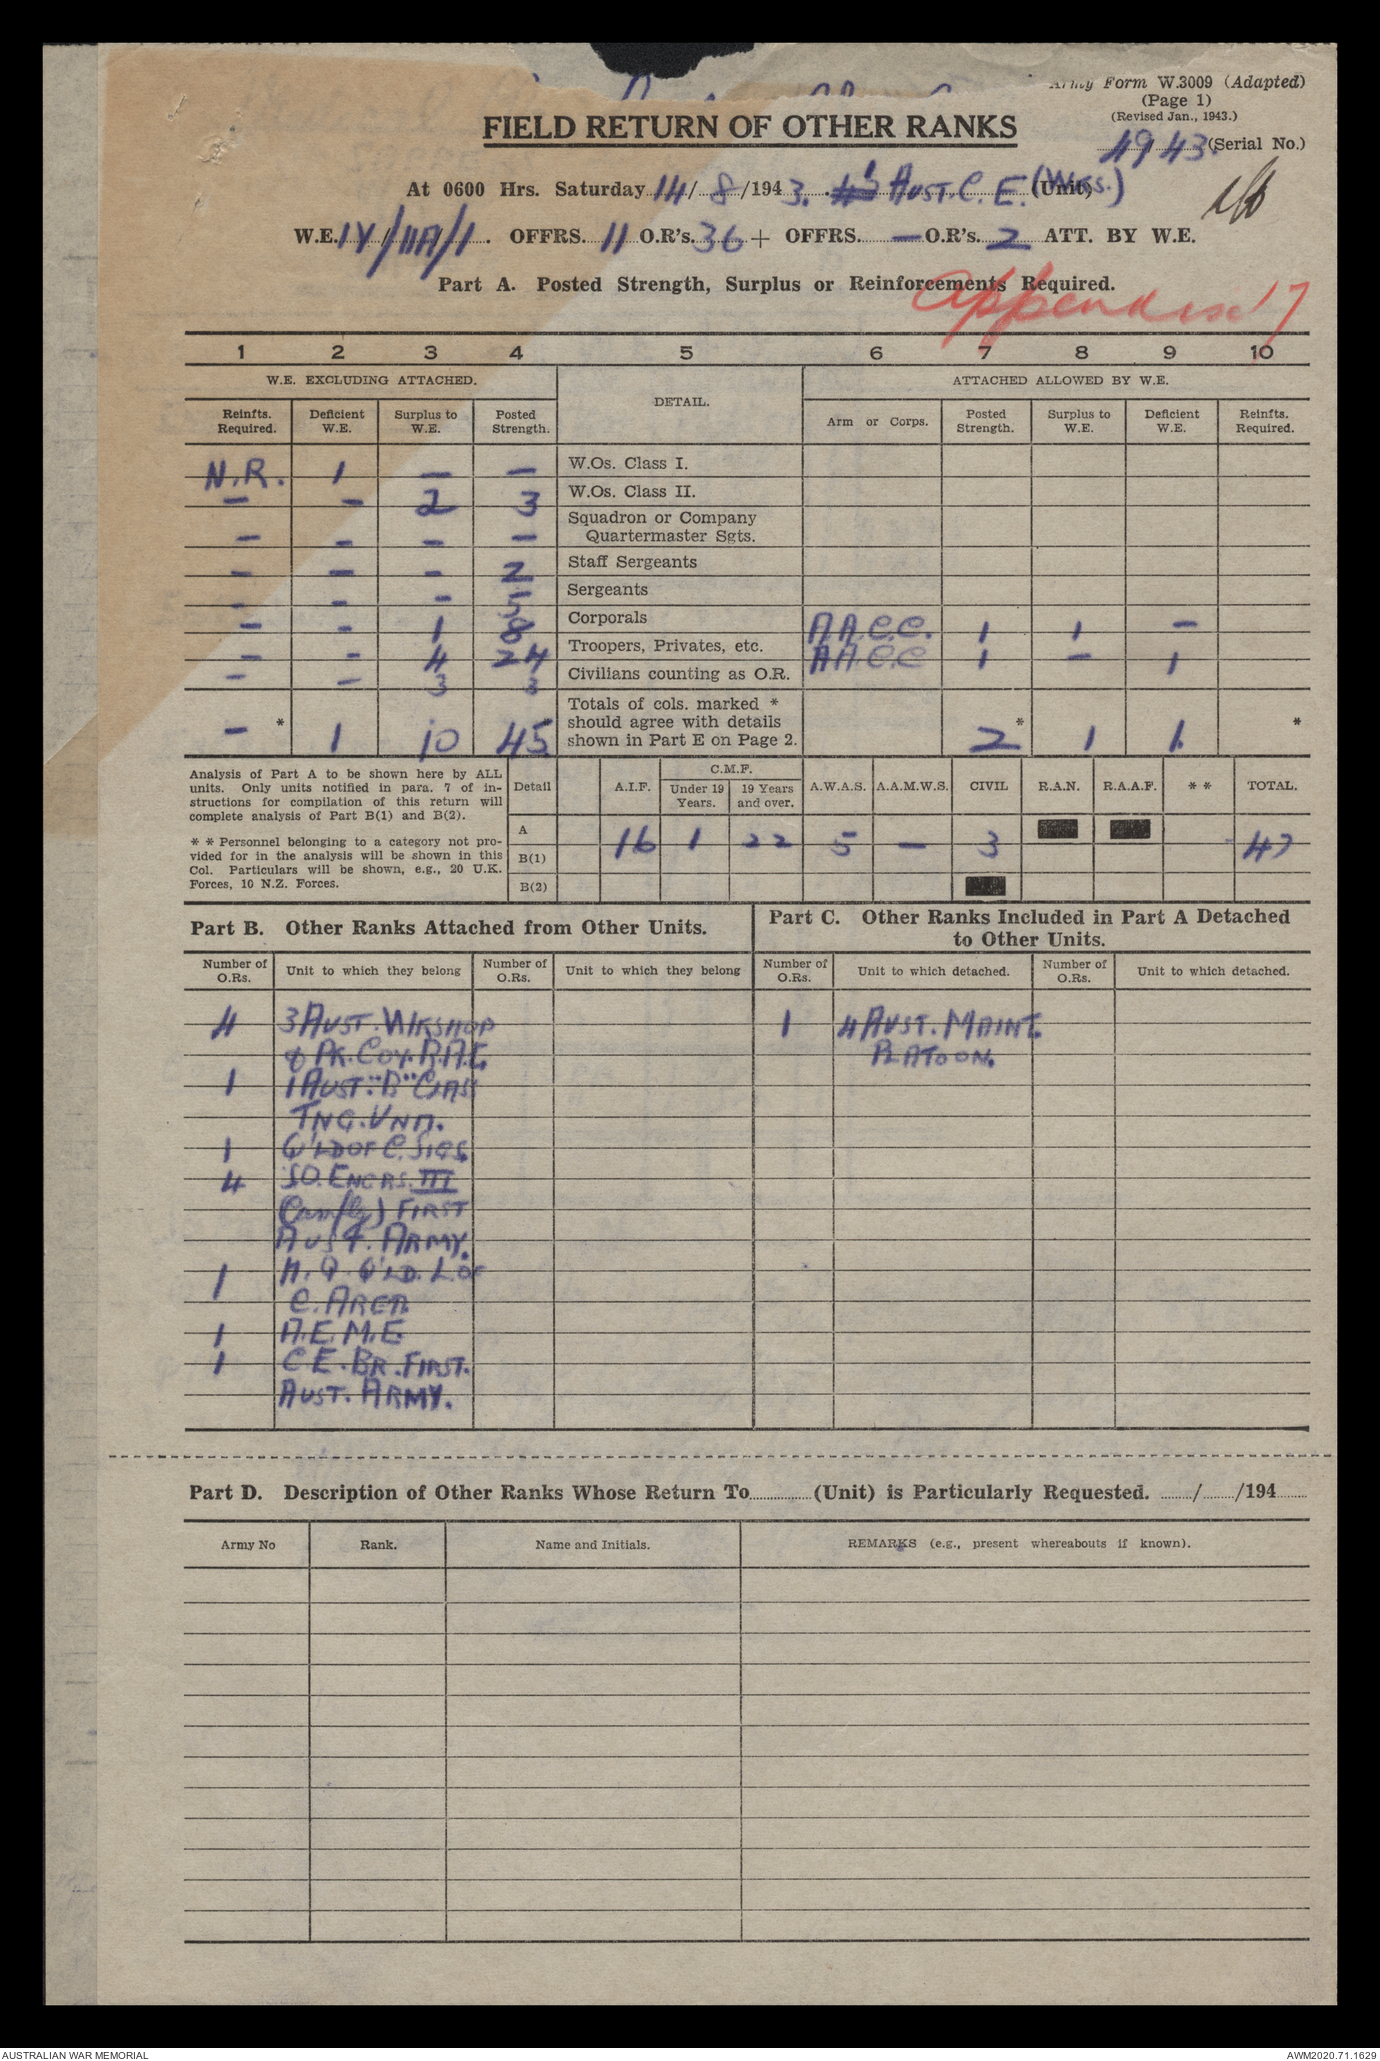 Army Form W.3009 (Adapted)
(Page 1)
(Revised Jan., 1943.)
FIELD RETURN OF OTHER RANKS
1943. (Serial No.)
At 0600 Hrs. Saturday 14/8/1943. 5 AUST. C. E. (WKS.) (Unit)
W.E. IY/11A/1. OFFRS. 11 O.R's. 36 + OFFRS. — O.R's. 2 ATT. BY W.E.
Part A. Posted Strength, Surplus or Reinforcements Required.
Appendix 17
1 2 3 4 5 6 7 8 9 10
W.E. EXCLUDING ATTACHED. DETAIL. ATTACHED ALLOWED BY W.E.
Reinfts. Required. Deficient W.E. Surplus to W.E. Posted Strength. Arm or Corps. Posted Strength. Surplus to W.E. Deficient W.E. Reinfts. Required.
N.R. 1 — — W.Os. Class I.
— — 2 3 W.Os. Class II.
Squadron or Company
— — — — Quartermaster Sgts.
— — — 2 Staff Sergeants
— — — 5 Sergeants
— — 1 8 Corporals A.A.C.C. 1 1 —
— — 4 24 Troopers, Privates, etc. A.A.C.C 1 — 1
— — 3 3 Civilians counting as O.R.
Totals of cols. marked *
* should agree with details * *
— 1 10 45 shown in Part E on Page 2. 2 1 1.
Analysis of Part A to be shown here by ALL
units. Only units notified in para. 7 of in-
structions for compilation of this return will
complete analysis of Part B(1) and B(2).
* * Personnel belonging to a category not pro-
vided for in the analysis will be shown in this
Col. Particulars will be shown, e.g., 20 U.K.
Forces, 10 N.Z. Forces.
Detail A.I.F. C.M.F. Under 19 Years. 19 Years and over. A.W.A.S. A.A.M.W.S. CIVIL R.A.N. R.A.A.F. * * TOTAL.
A 16 1 22 5 — 3 47
B(1)
B(2)
Part B. Other Ranks Attached from Other Units.
Part C. Other Ranks Included in Part A Detached
to Other Units.
Number of O.Rs. Unit to which they belong Number of O.Rs. Unit to which they belong Number of O.Rs. Unit to which detached. Number of O.Rs. Unit to which detached.
4 3 AUST. WKSHOP 1 4 AUST. MAINT.
& PK. COY. R.A.E. PLATOON.
1 1 AUST. "B" CLASS
TNG. UNIT.
1 Q'LD OF C. SIGS.
4 SO. ENGRS. III
(Camflg) FIRST
AUST. ARMY.
1 H.Q. Q'LD. L OF
C. AREA.
1 A.E.M.E.
1 C E. BR. FIRST.
AUST. ARMY.
Part D. Description of Other Ranks Whose Return To (Unit) is Particularly Requested. / /194
Army No Rank. Name and Initials. REMARKS (e.g., present whereabouts if known).
AUSTRALIAN WAR MEMORIAL AWM2020.71.1629